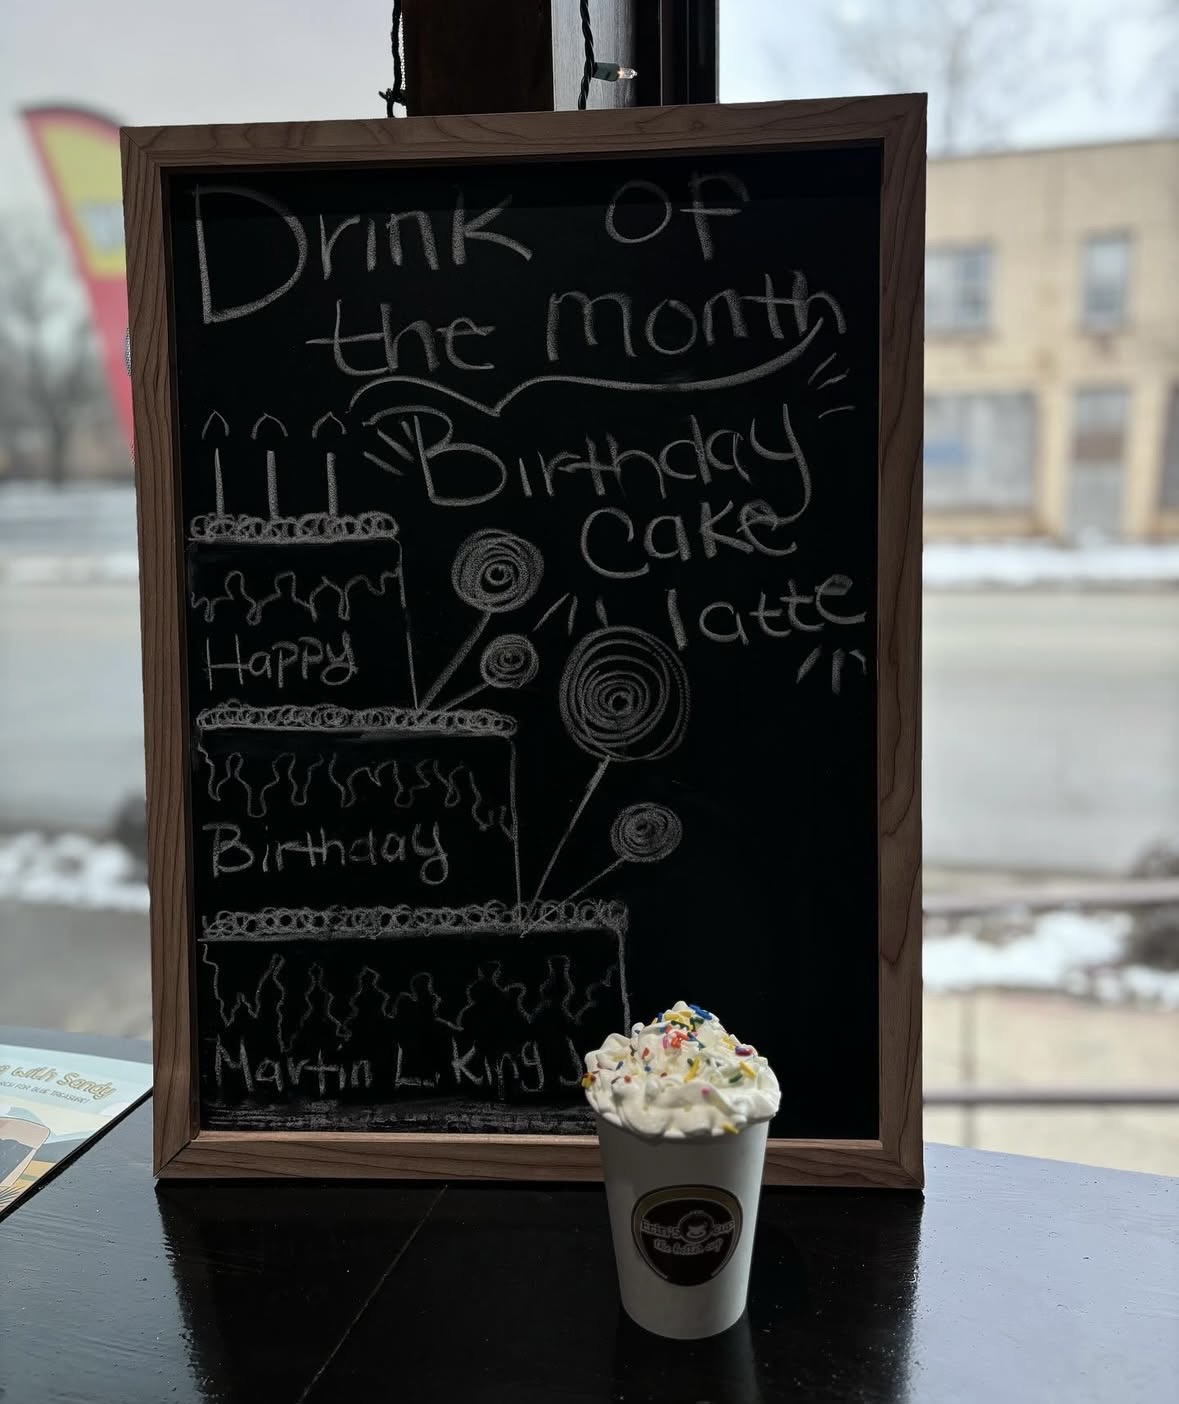 Drink of
the month
Birthday
Cake
latte
Happy
Birthday
Martin L. King J
with Sandy
Erin's Cup
the better cup